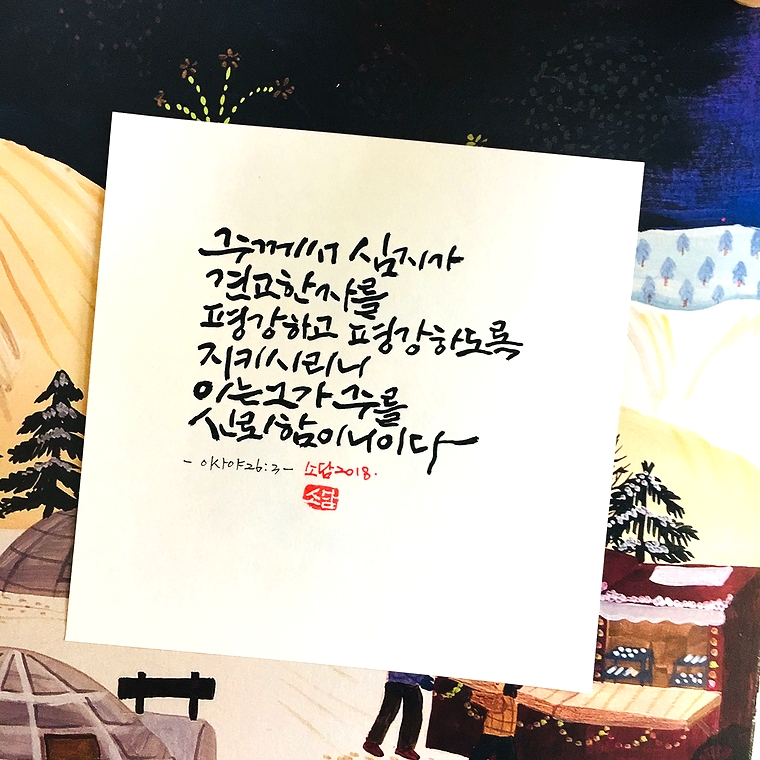 주께서 심지가
견고한 자를
평강하고 평강하도록
지키시리니
이는 그가 주를
신뢰함이니이다
- 이사야 26:3 - 소담 2018.
소담